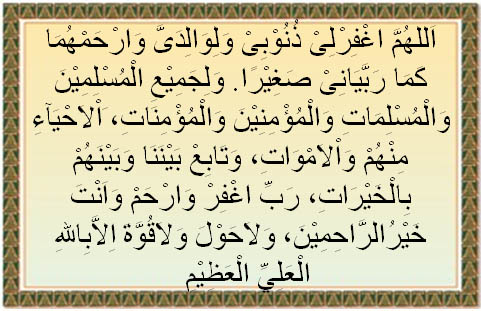 اَللهُمَّ اغْفِرْلِيْ ذُنُوْبِيْ وَلِوَالِدَيَّ وَارْحَمْهُمَا
كَمَا رَبَّيَانِيْ صَغِيْرًا. وَلِجَمِيْعِ الْمُسْلِمِيْنَ
وَالْمُسْلِمَاتِ وَالْمُؤْمِنِيْنَ وَالْمُؤْمِنَاتِ، اْلاَحْيَآءِ
مِنْهُمْ وَاْلاَمْوَاتِ، وَتَابِعْ بَيْنَنَا وَبَيْنَهُمْ
بِالْخَيْرَاتِ، رَبِّ اغْفِرْ وَارْحَمْ وَاَنْتَ
خَيْرُالرَّاحِمِيْنَ، وَلاَحَوْلَ وَلاَقُوَّةَ اِلاَّبِاللهِ
الْعَلِيِّ الْعَظِيْمِ